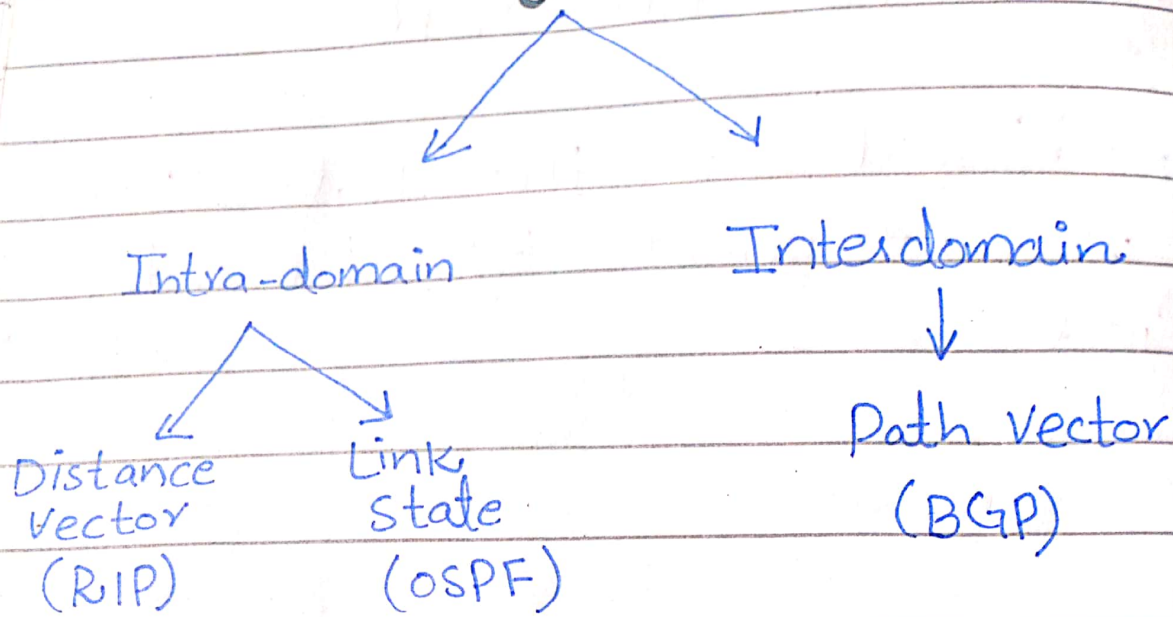 Intra-domain
Interdomain
Distance
Vector
(RIP)
Link
State
(OSPF)
Path Vector
(BGP)